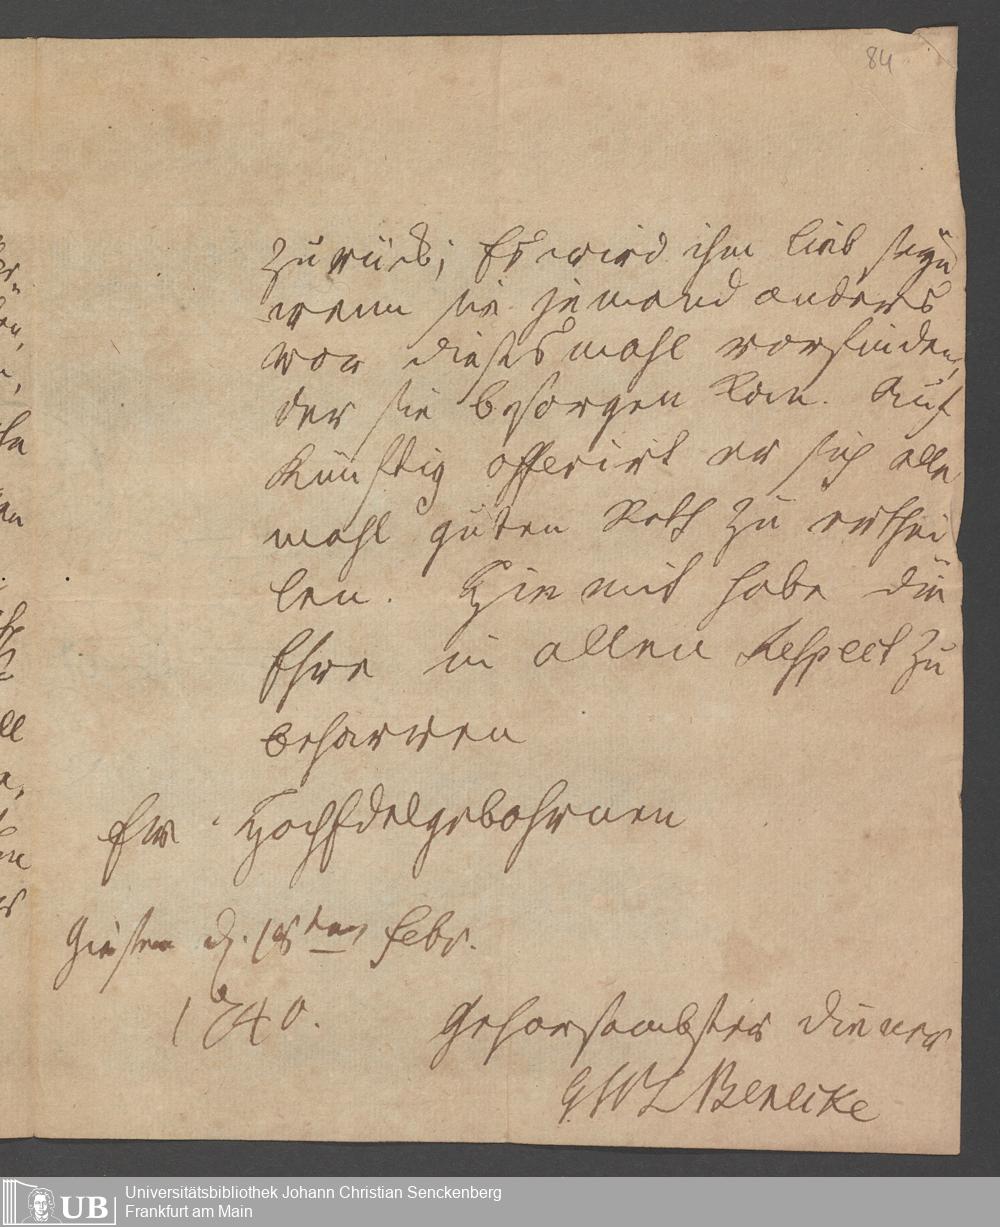 84
zurück; Es wird ihm lieb seyn
wenn sie jemand anders
vor diesesmahl vorfinden,
der sie besorgen kan. Auf
künftig offerirt er sich alle
mahl guten Rath zu erthei
len. Hiemit habe die
Ehre in allen Respect zu
beharren
Ew. HochEdelgebohrnen
Giesen d. 18ten Febr.
1740.
Gehorsambster Diener
G W L Benecke
UB
Universitätsbibliothek Johann Christian Senckenberg
Frankfurt am Main